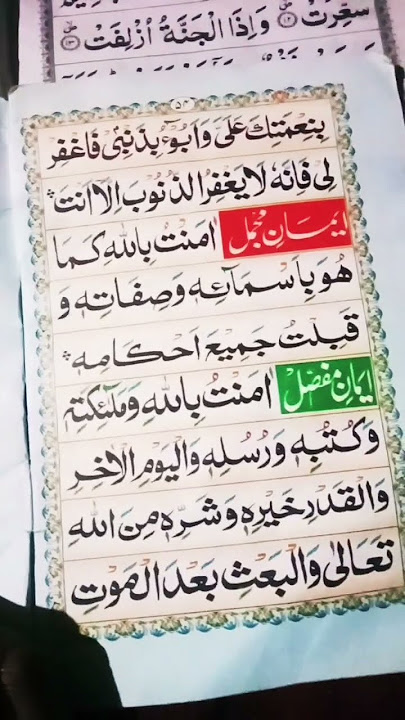 سُعِّرَتْ ۞ وَاِذَا الْجَنَّةُ اُزْلِفَتْ ۞
۵۴
بِنِعْمَتِكَ عَلَيَّ وَاَبُوْءُ بِذَنْبِيْ فَاغْفِرْ
لِيْ فَاِنَّهٗ لَا يَغْفِرُ الذُّنُوْبَ اِلَّا اَنْتَ
ایمانِ مجمل اٰمَنْتُ بِاللّٰهِ كَمَا
هُوَ بِاَسْمَآئِهٖ وَصِفَاتِهٖ وَ
قَبِلْتُ جَمِيْعَ اَحْكَامِهٖ
ایمانِ مفصّل اٰمَنْتُ بِاللّٰهِ وَمَلٰٓئِكَتِهٖ
وَكُتُبِهٖ وَرُسُلِهٖ وَالْيَوْمِ الْاٰخِرِ
وَالْقَدْرِ خَيْرِهٖ وَشَرِّهٖ مِنَ اللّٰهِ
تَعَالٰى وَالْبَعْثِ بَعْدَ الْمَوْتِ